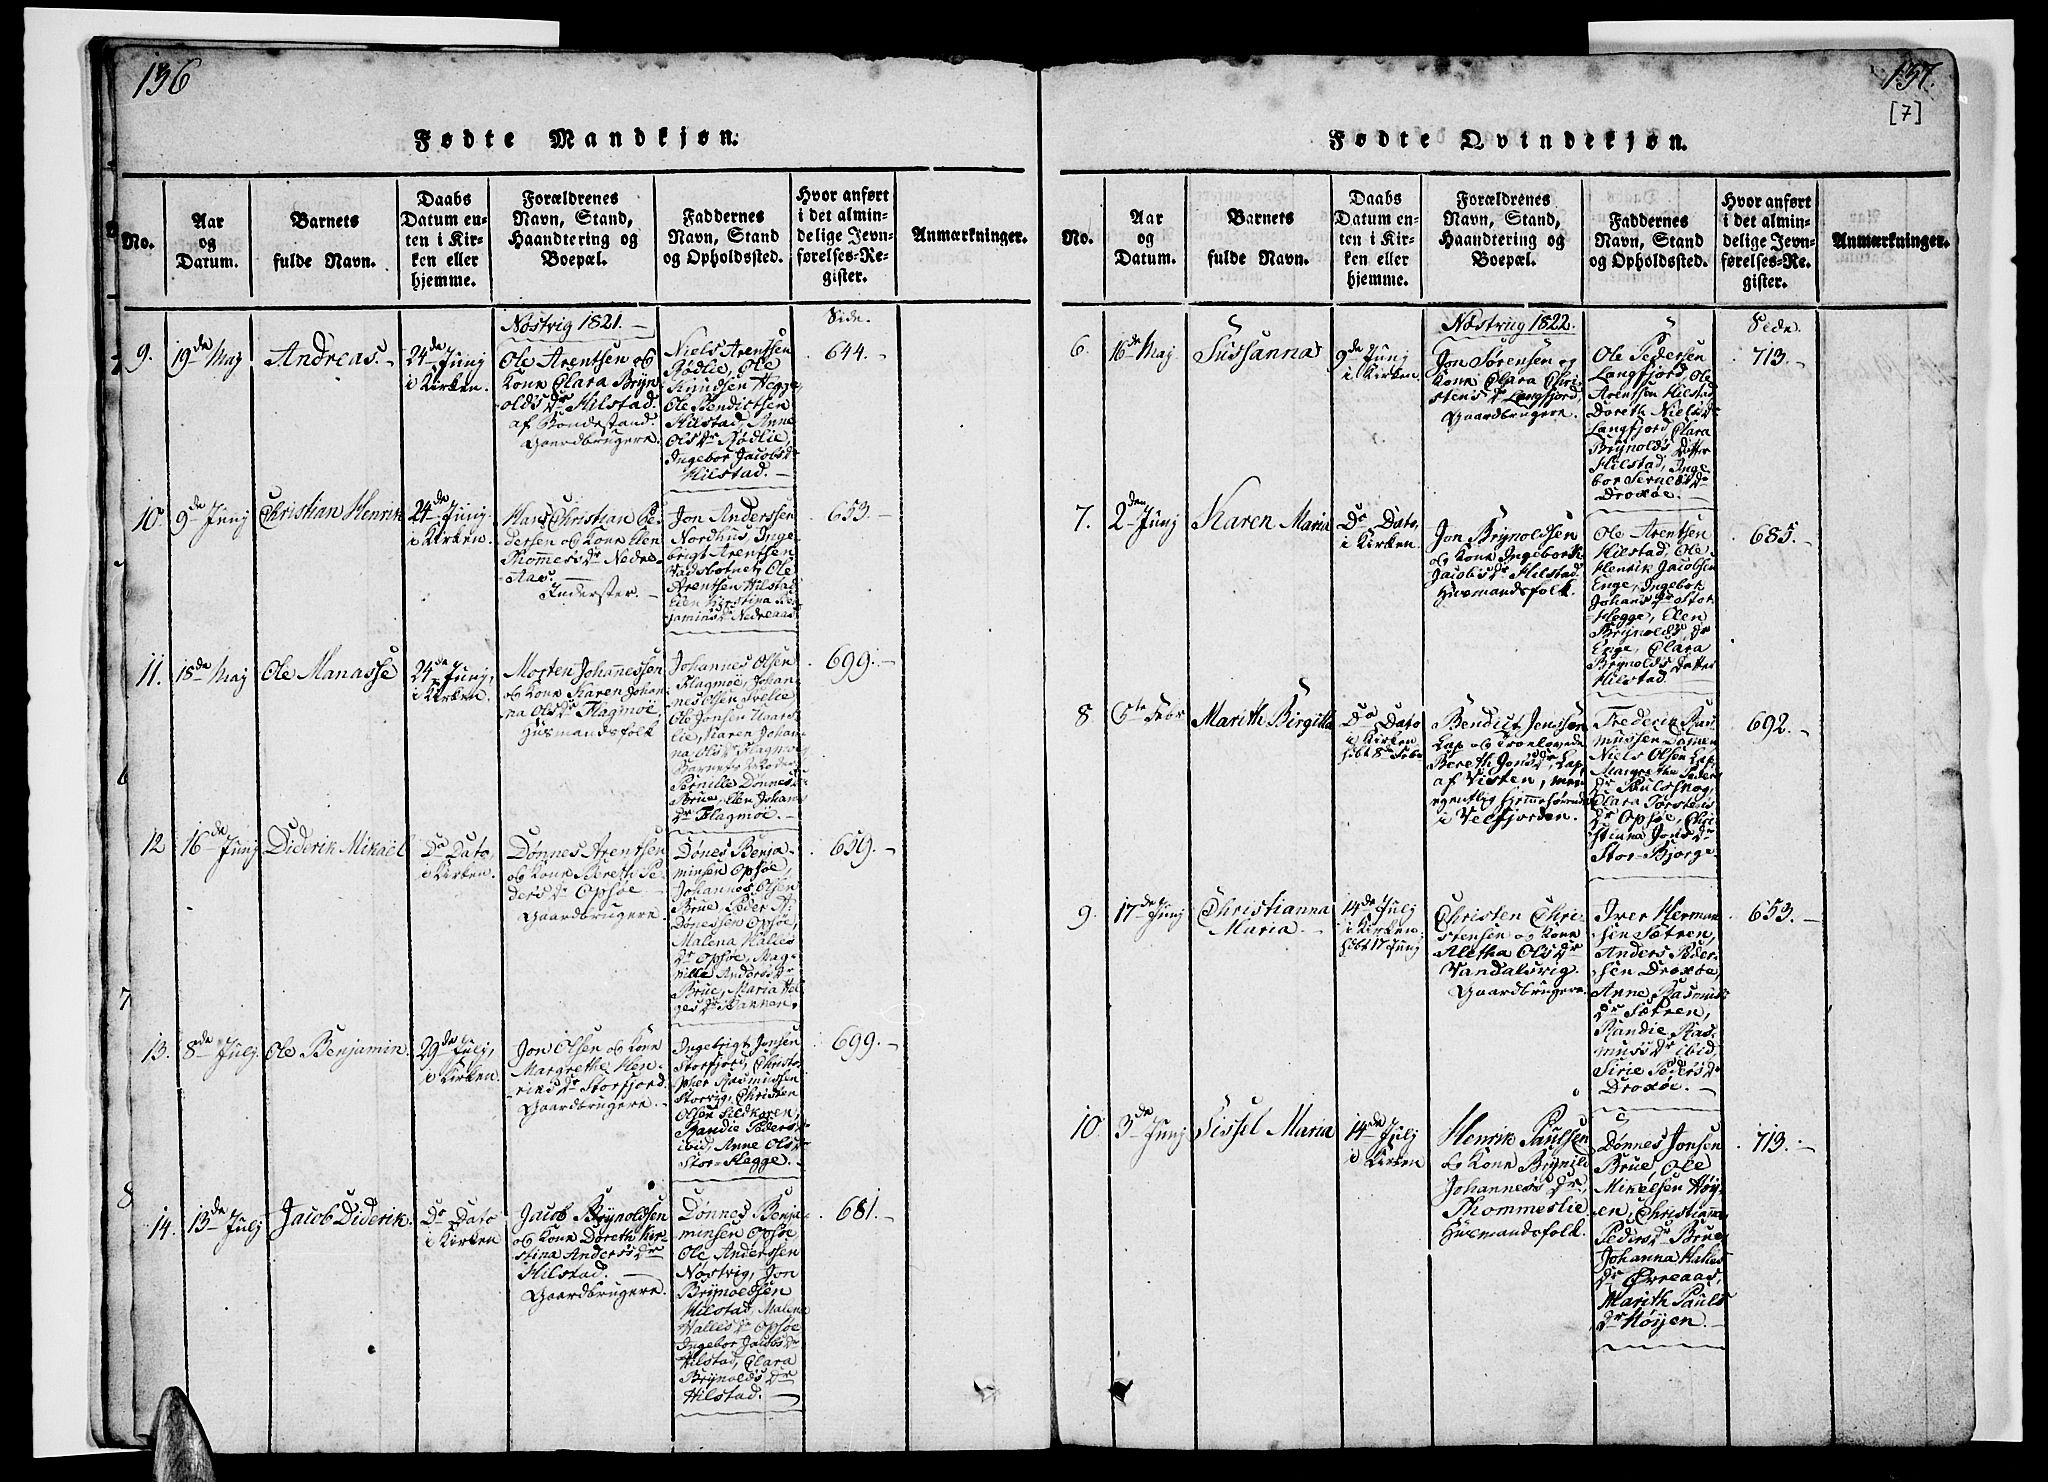 136
Fødte Mandkjøn.
No.
Aar
og
Datum.
Barnets
fulde Navn.
Daabs
Datum en-
ten i Kir-
ken eller
hjemme.
Forældrenes
Navn, Stand,
Haandtering og
Boepæl.
Faddernes
Navn, Stand
og Opholdssted.
Hvor anført
i det almin-
delige Jevn-
førelses-Re-
gister.
Anmærkninger.
9.
19de Maj
Andreas.
24de Junj
i Kirken.
Nøstvig 1821.
Ole Arentsen og
Kone Clara Bryn-
oldsDr Hilstad.
af Bondestand.
Gaardbrugere.
Niels Arentsen
Ole
Sigurdsen Hegge
Ole Bendictsen
Hilstad, Anne
OlsDr
Ingebor JacobsDr
Hilstad.
Side.
644.
10.
9de Junj
Christian Henrik
24de Junj
i Kirken.
Hans Christian Pe-
dersen og Kone Elen
ThommesDr Nedre
Aas.
Inderster.
Jon Andersen
Nordhus, Inge-
brigt Arentsen
Vadsbotnet, Ole
Arentsen Hilstad
Elen Kirstina Ben-
jaminsDr Nedreaas
653
11.
18de Maj
Ole Manasse
24de Junj,
i Kirken.
Morten Johannessen
og Kone Karen Johan-
na OlsDr Flagmoe,
Husmandsfolk
Johannes Olsen
Flagmøe, Johan-
nes Olsen
Ole Jonsen
Karen Johan-
na OlsDr Flagmøe
Barnets Moder,
Pernille DønnesDr
Brue, Elen Johans
Dr Flagmøe.
699.
12
16de Junj
Diderik Mikael
Do Dato,
i Kirken.
Dønnes Arentsen
og Kone Bereth Pe-
dersDr Opsøe
Gaardbrugere.
Dønes Benja-
minsen Opsøe,
Johannes Olsen
Brue, Peder A.
Dønessen Opsøe,
Malena Halles
Dr Opsøe, Mag-
nille AndersDr
Brue, Maria Hel-
gesDr
659.
13.
8de Julj.
Ole Benjamin.
29de Julj,
i Kirken.
Jon Olsen og Kone
Margrethe Hen-
riksDr Storfjord.
Gaardbrugere.
Ingebrigt Jonsen
Storfjord, Christo-
pher Rasmussen
Storvig, Christen
Olsen Sildhaven,
Randie PedersDr
ibid, Anne OlsDr
Stor-Hegge.
699.
14.
13de Julj
Jacob Diderik.
Do Dato
i Kirken
Jacob Brynoldsen
og Kone Doreth Kir-
stina AndersDr
Hilstad.
Gaardbrugere.
Dønnes Benja-
minsen Opsøe
Ole Anderssen
Nøstvig, Jon
Brynoldsen
Hilstad, Malena
HallesDr Opsøe
Ingebor JacobsDr
Hilstad, Clara
BrynoldsDr
Hilstad.
681.
137.
[7]
Fødte Qvindekjøn.
No.
Aar
og
Datum.
Barnets
fulde Navn.
Daabs
Datum en-
ten i Kir-
ken eller
hjemme.
Forældrenes
Navn, Stand,
Haandtering og
Boepæl.
Faddernes
Navn, Stand
og Opholdssted.
Hvor anført
i det almin-
delige Jevn-
førelses-Re-
gister.
Anmærkninger.
6.
16de Maj
Sussanna
9de Junj
i Kirken.
Nøstvug 1822.
Jon Sørensen og
Kone Clara Chri-
stensDr Langfjord,
Gaardbrugere.
Ole Pedersen
Langfjord, Ole
Arentsen Hilstad
Doreth NielsDr
Langfjord, Clara
Brynolds Datter
Hilstad, Inge-
bor
Droxøe.
Side.
713.
7.
2den Junj
Karen Maria
Do Dato,
i Kirken.
Jon Brynoldsen
og Kone Ingebor
JacobsDr Hilstad.
Husmandsfolk.
Ole Arentsen
Hilstad, Ole
Henrik Jacobsen
Enge, Ingebor
JohansDr Stor-
Hegge, Elen
BrynoldsDr
Enge, Clara
Brynolds Datter
Hilstad.
685.
8
6te Febr
Marith Birgitta
Do Dato
i Kirken
hdbt 8de Febr
Bendict Jenssen
Lap og Trolovede
Bereth JonsDr, Lap
af Visten, men
egentlig hjemmehørende
i Velfjorden.
Frederik Ras-
mussen
Niels Olsen Lap,
Margrethe Peders
Dr
Clara Torstens
Dr Opsøe, Chri-
stiana JonsDr
Stor-Bjorge.
692.
9.
17de Junj
Christianna
Maria.
14de Julj
i Kirken.
hdbt 17 Junj
Christen Chri-
stensen og Kone
Aletha OlsDr
Vandalsvig.
Gaardbrugere.
Iver Herman-
sen Sætren,
Anders Peder-
sen Droxøe,
Anne Rasmus
Dr Sætren,
Randie Ras-
musDr ibid,
Sirie PedersDr
Droxøe.
653.
10.
3de Junj
Sissel Maria
14de Julj
i Kirken
Henrik Paulsen
og Kone Brynild
JohannesDr,
Thommeslie
Husmandsfolk.
Dønnes Jonsen
Brue, Ole
Mikelsen Høy-
en, Christianna
PedersDr Brue,
Johanna Halles
Dr Øvreaas,
Marith Pauls
Dr Høyen.
713.